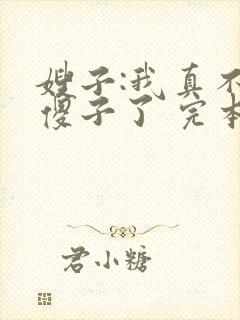 嫂子:我真不
傻子了 完本
君小糖